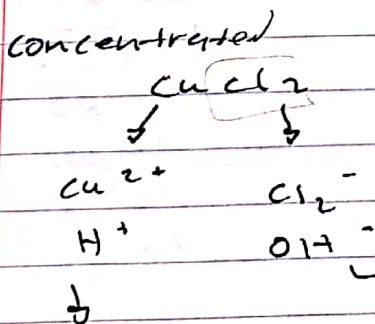 concentrated
CuCl2
Cu2+ Cl2-
H+ OH-